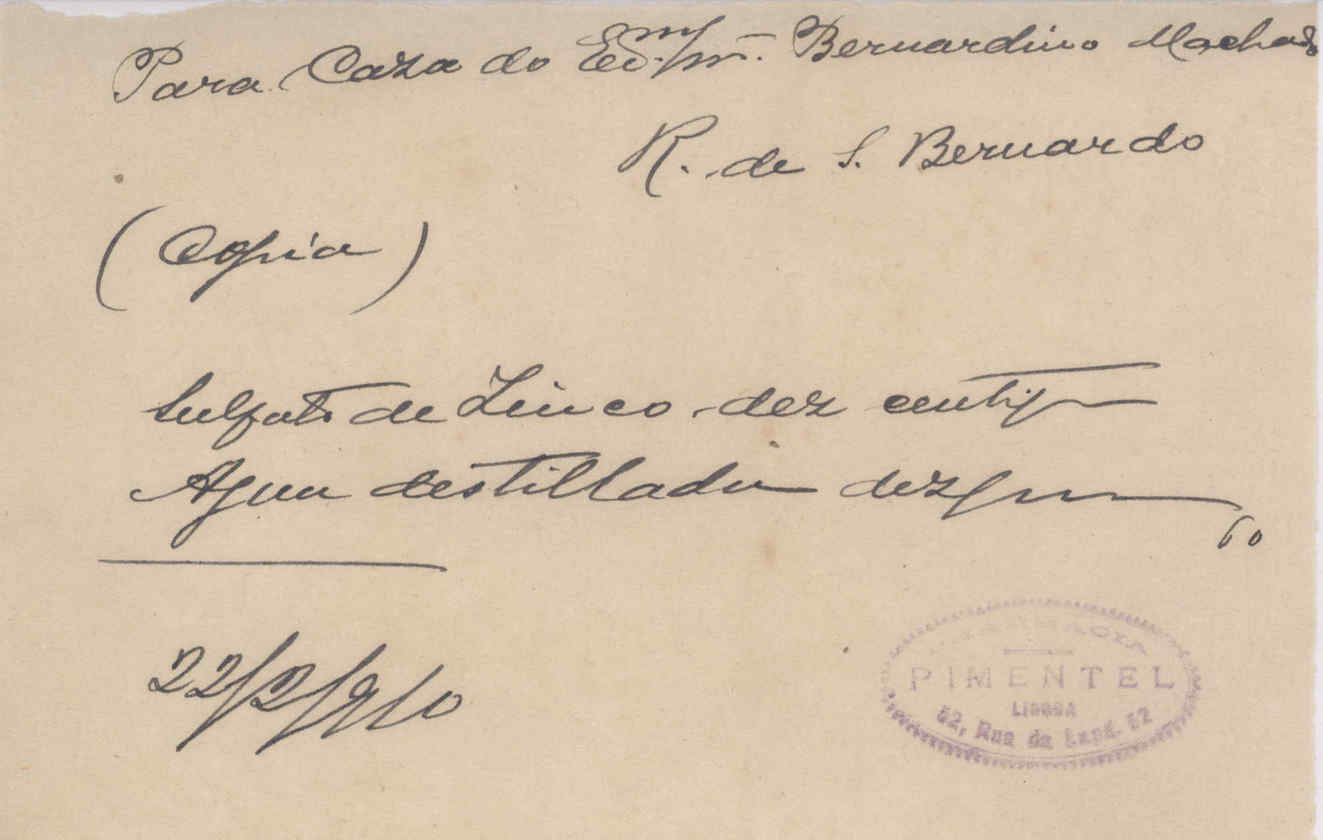 Para Caza do Exmº Snr. Bernardino Machado
R. de S. Bernardo
(Copia)
Sulfato de Zinco dez centigr
Agua destillada dez gr
60
22/2/910
PHARMACIA
PIMENTEL
LISBOA
52, Rua da Lapa, 52